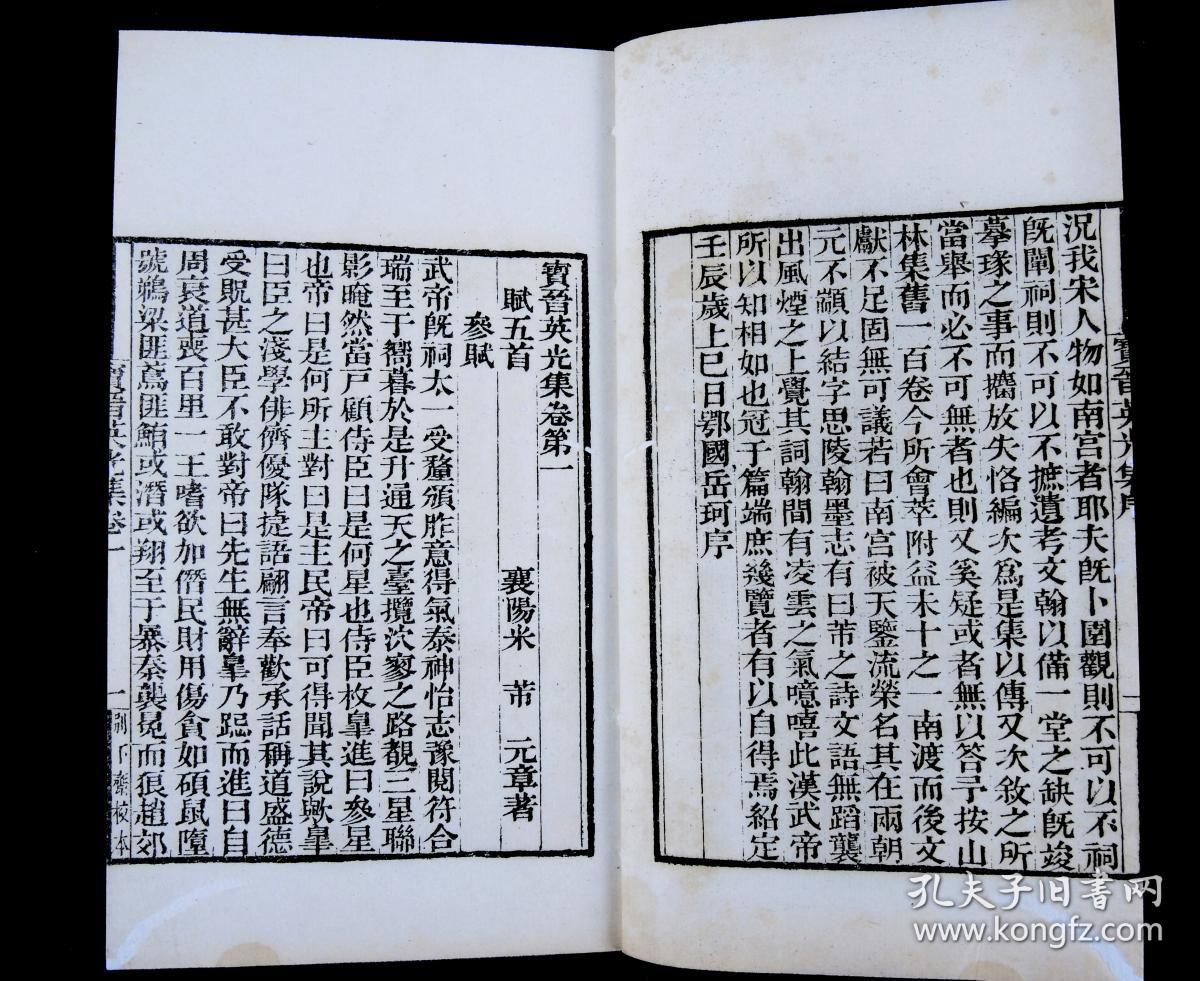 況我宋人物如南宮者耶夫旣卜園觀則不可以不祠
旣闡祠則不可以不摭遺考文翰以備一堂之缺旣竣
摹瑑之事而攟放失恪編次爲是集以傳又次敘之所
當舉而必不可無者也則又奚疑或者無以答予按山
林集舊一百卷今所會萃附益未十之一南渡而後文
獻不足固無可議若曰南宮被天鑒流榮名其在兩朝
元不顓以結字思陵翰墨志有曰芾之詩文語無蹈襲
出風煙之上覺其詞翰間有凌雲之氣噫嘻此漢武帝
所以知相如也冠于篇端庶幾覽者有以自得焉紹定
壬辰歲上巳日鄂國岳珂序
寶晉英光集序
一
寶晉英光集卷第一
襄陽米 芾 元章著
賦五首
參賦
武帝旣祠太一受釐頒胙意得氣泰神怡志豫閱符合
瑞至于嚮暮於是升通天之臺攬泬寥之路覩三星聯
影晻然當戶顧侍臣曰是何星也侍臣枚臯進曰參星
也帝曰是何所主對曰是主民帝曰可得聞其說歟臯
曰臣之淺學俳儕優隊捷語翩言奉歡承話稱道盛德
受貺甚大臣不敢對帝曰先生無辭臯乃跽而進曰自
周衰道喪百里一王嗜欲加僭民財用傷貪如碩鼠墮
號鵜梁匪蔦匪鮪或潛或翔至于暴秦襲冕而狼趙郊
寶晉英光集卷一
一
別下齋校本
孔夫子旧书网
www.kongfz.com